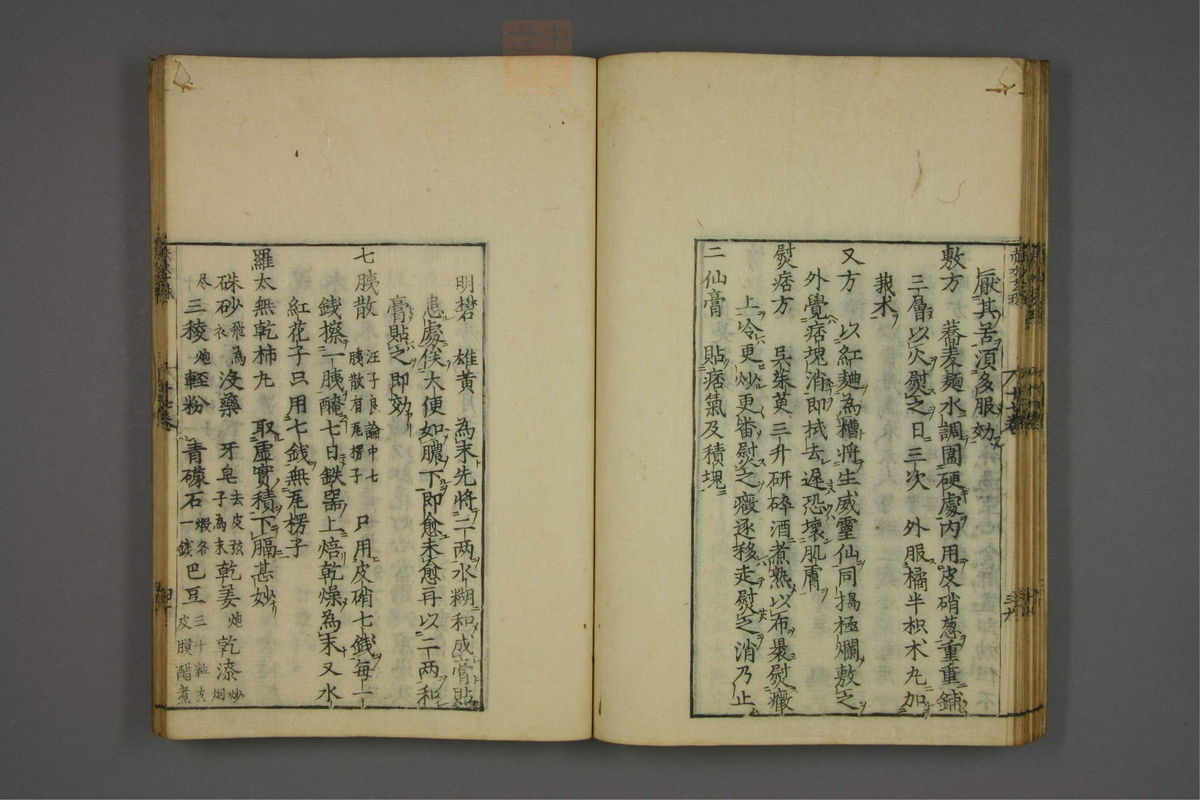 厭其苦須多服効
敷方　蕎麦麺水調圍硬處內用皮硝葱重重鋪
三層以火熨之日三次　外服橘半枳朮丸加
莪朮
又方　以紅麯為糟將生威靈仙同搗極爛敷之
外覺痞塊消即拭去遲恐壞肌膚
熨痞方　吳茱萸三升研碎酒煮熟以布裹熨癥
上冷更炒更番熨之癥逐移走熨之消乃止
二仙膏　貼痞氣及積塊
明礬　雄黃　為末先將二两水糊和成膏貼
患處俟大便如膿下即愈未愈再以二两和
膏貼之即効
七胰散　汪子良論中七胰散有瓦楞子　只用皮硝七錢每上一
錢搽一胰醃七日鉄器上焙乾燥為末又水
紅花子只用七錢無瓦楞子
羅太無乾柿丸　取虛實積下膈甚妙
硃砂飛為衣沒藥　牙皂去皮弦子為末乾姜炮乾漆炒烟
尽三稜炮輕粉　青礞石一錢巴豆三十粒去皮膜醋煮